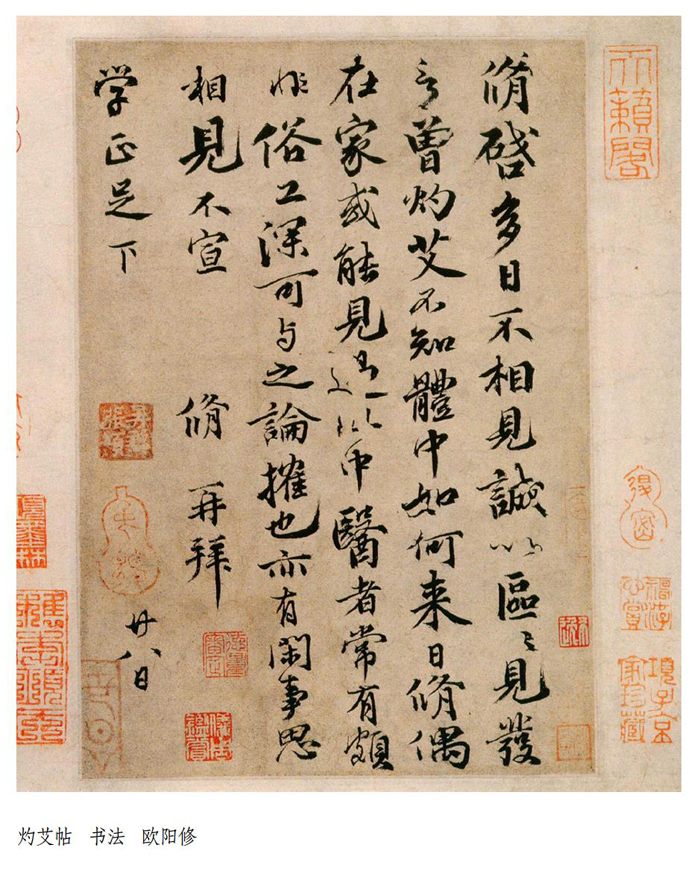 天籟閣
項子京家珍藏
脩啓多日不相見誠以區〻見發
言曾灼艾不知體中如何来日脩偶
在家或能見過此中醫者常有頗
非俗工深可与之論搉也亦有閑事思
相見不宣 脩再拜
学正足下 廿八日
灼艾帖 书法 欧阳修